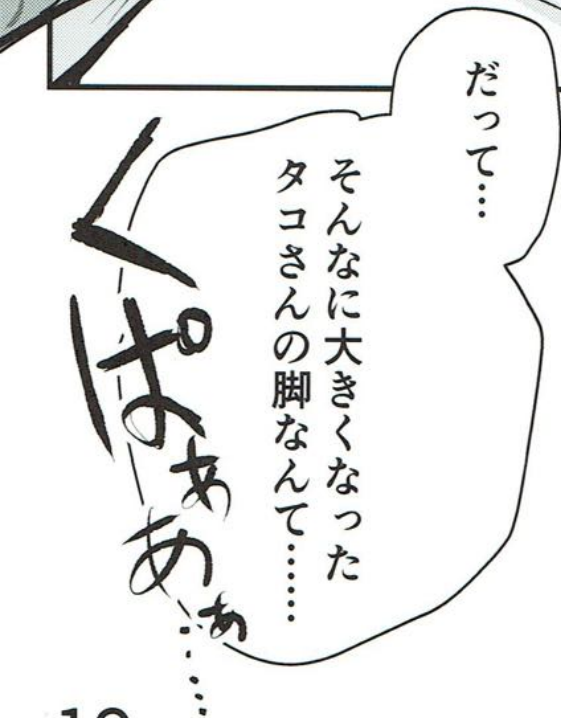 だって…
そんなに大きくなった
タコさんの脚なんて……
くぱぁあぁ……